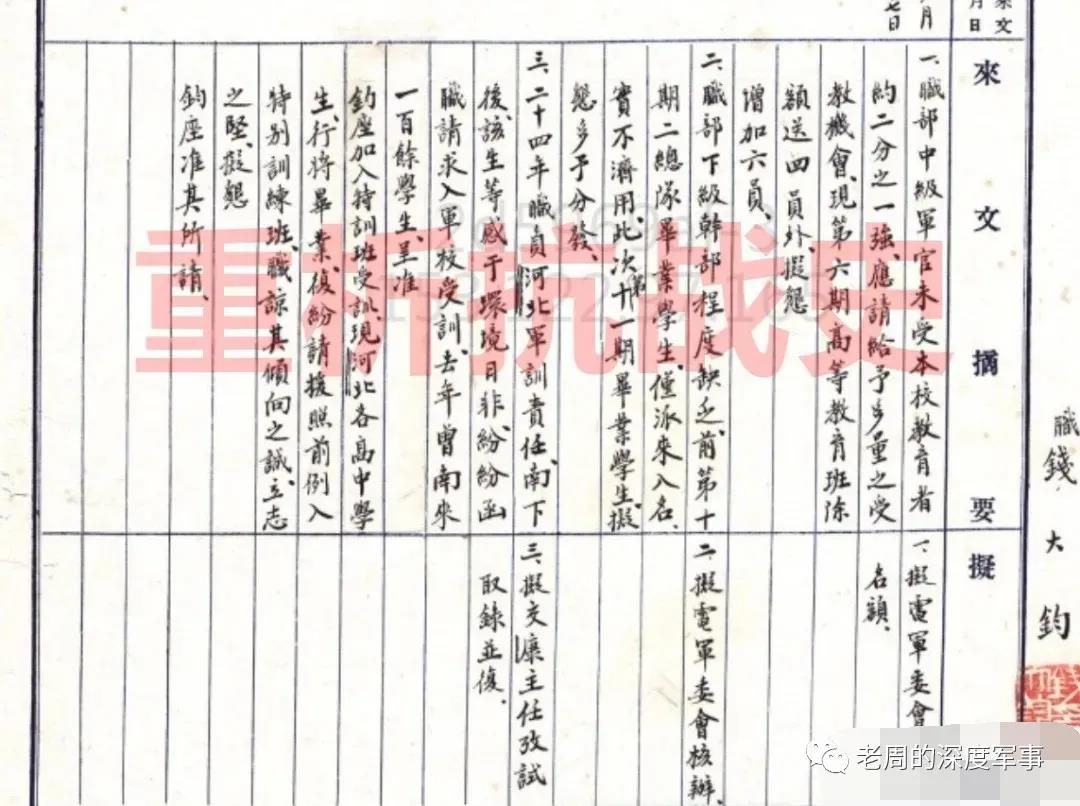 職錢大鈞
文
月日
月
七日
來文摘要
一、職部中級軍官未受本校教育者
約二分之一強、應請給予多量之受
教機會、現第六期高等教育班除
額送四員外、擬懇
增加六員、
二、職部下級幹部程度缺乏、前第十
期二總隊畢業學生、僅派來八名、
實不濟用、此次第十一期畢業學生、擬
懇多予分發、
三、二十四年職員河北軍訓責任、南下
後、該生等感于環境日非、紛紛函
職請求入軍校受訓、去年曾南來
一百餘學生、呈准
鈞座加入特訓班受訓、現河北各高中學
生、行將畢業、復紛請援照前例入
特別訓練班、職諒其傾向之誠、立志
之堅、擬懇
鈞座准其所請、
擬
一、擬電軍委會
名額、
二、擬電軍委會核辦、
三、擬交康主任攷試
取錄並復、
重析抗战史
老周的深度军事